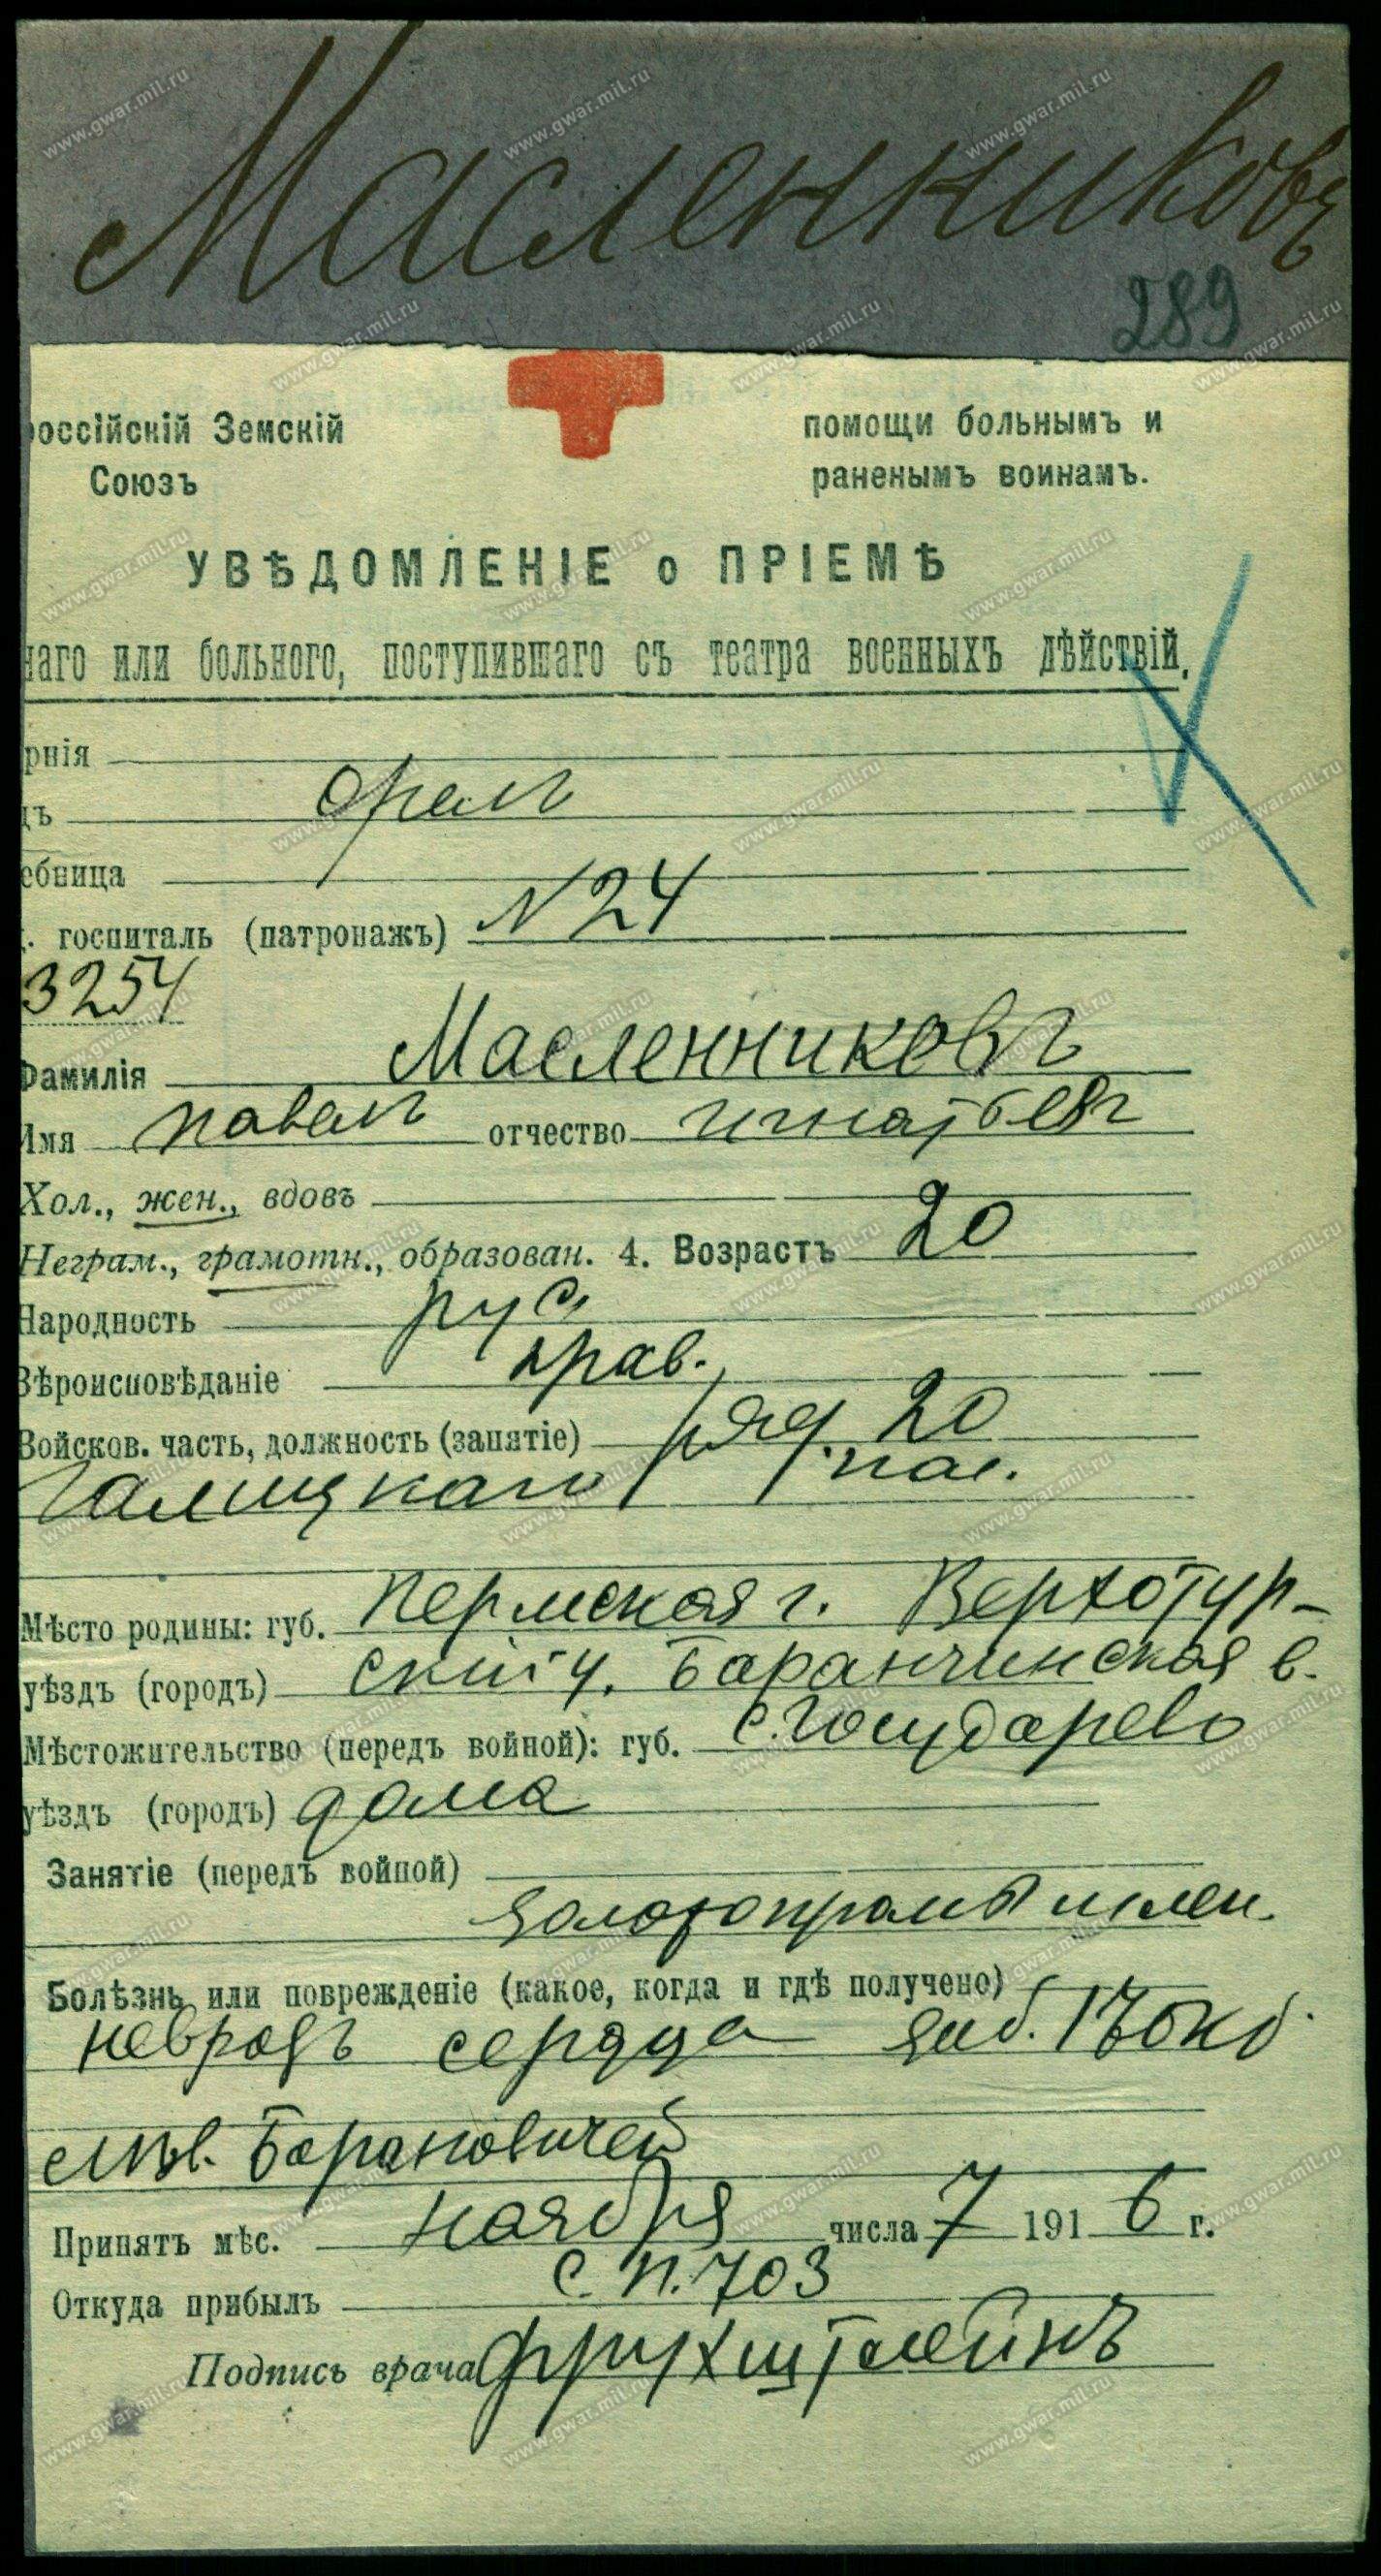 Масленниковъ
289
россійскій Земскій
Союзъ
помощи больнымъ и
раненымъ воинамъ.
УВѢДОМЛЕНІЕ о ПРІЕМѢ
наго или больного, поступившаго съ театра военныхъ дѣйствій,
рнія
дъ Орелъ
ебница
. госпиталь (патронажъ) N 24
3254
Фамилія Масленниковъ
Имя Павелъ отчество Игнатьевъ
Хол., жен., вдовъ
Неграм., грамотн., образован. 4. Возрастъ 20
Народность рус.
Вѣроисповѣданіе прав.
Войсков. часть, должность (занятіе) ряд. 20
Галицкаго пол.
Мѣсто родины: губ. Пермская г. Верхотур-
уѣздъ (городъ) скій у. Баранчинская в.
Мѣстожительство (передъ войной): губ. с. Государево
уѣздъ (городъ) дома
Занятіе (передъ войной)
золотопромышлен.
Болѣзнь или поврежденіе (какое, когда и гдѣ получено)
неврозъ сердца заб. 17 окт.
Барановичей
Принятъ мѣс. ноября числа 7 1916 г.
Откуда прибылъ с п. 703
Подпись врача Фрухштейнъ
www.gwar.mil.ru